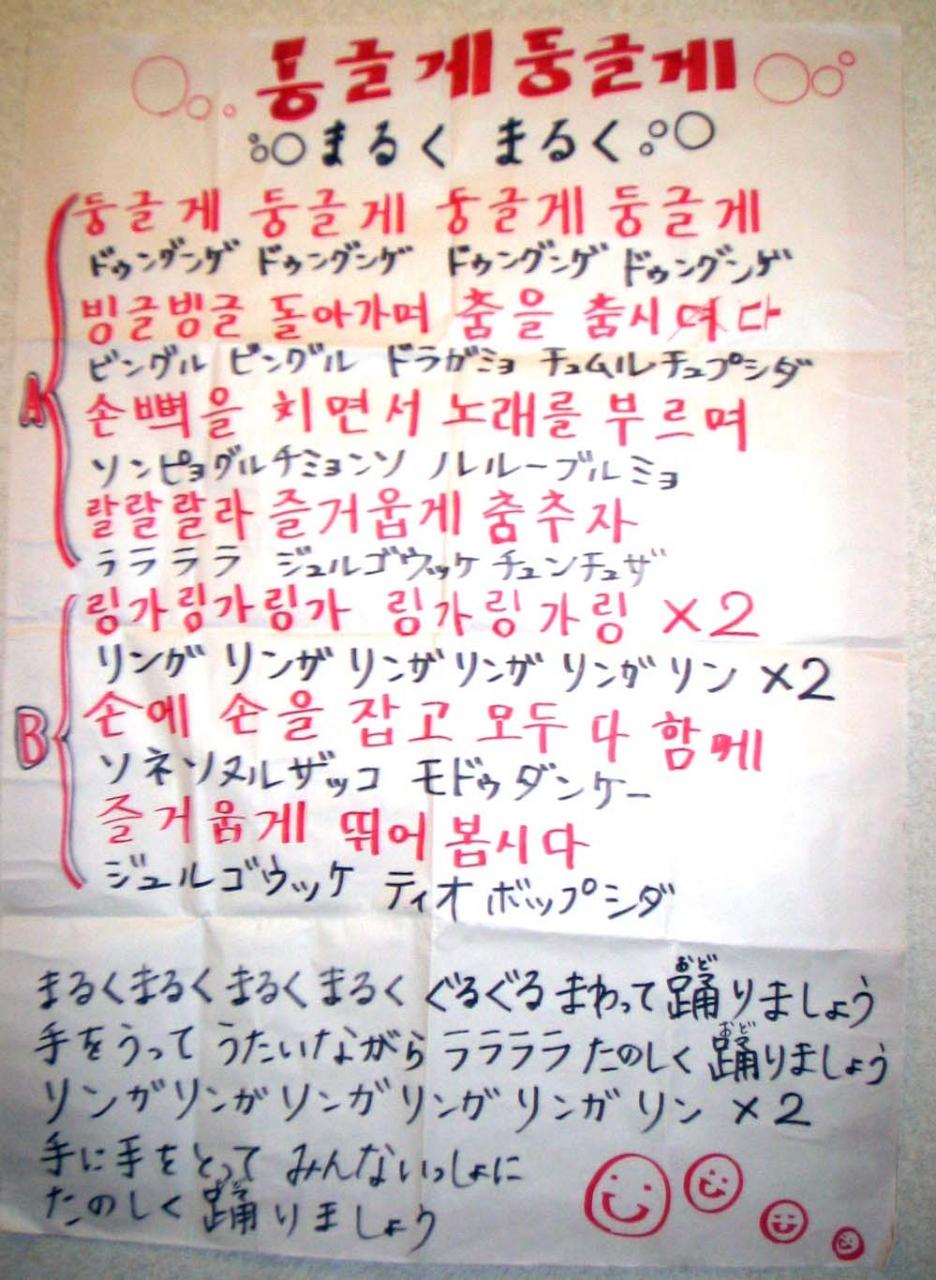 둥글게둥글게
まるく まるく
둥글게 둥글게 둥글게 둥글게
ドゥングンゲ ドゥングンゲ ドゥングンゲ ドゥングンゲ
빙글빙글 돌아가며 춤을 춤시며다
ビングル ビングル ドラガミョ チュムルチュプシダ
A
손뼉을 치면서 노래를 부르며
ソンピョグルチミョンソ ノレルーブルミョ
랄랄랄라 즐거웁게 춤추자
ララララ ジュルゴウッケ チュンチュザ
링가링가링가 링가링가링 ×2
リンガ リンガ リンガリンガ リンガリン ×2
B
손에 손을 잡고 모두 다 함께
ソネソヌルザッコ モドゥダンケー
즐거웁게 뛰어 봅시다
ジュルゴウッケ ティオ ボップシダ
まるくまるくまるくまるく ぐるぐるまわって踊りましょう
おど
手をうって うたいながら ララララ たのしく 踊りましょう
おど
リンガリンガリンガリンガリンガリン ×2
手に手をとって みんないっしょに
たのしく 踊りましょう
おど